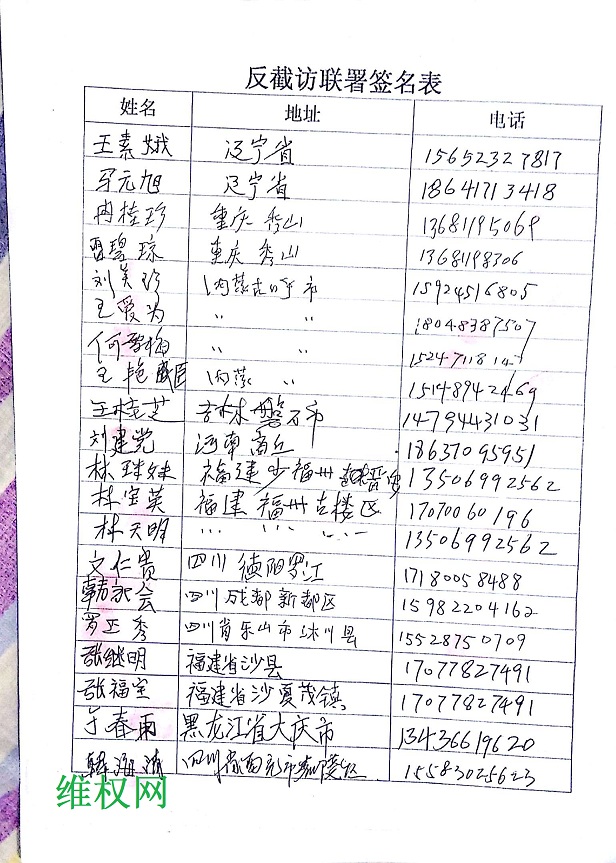 反截访联署签名表
姓名 地址 电话
王素娥 辽宁省 15652327817
牙元旭 辽宁省 18641713418
冉桂珍 重庆 秀山 13681195069
碧琼 重庆 秀山 13681198306
刘美珍 内蒙古呼市 15924516805
王爱为 〃 〃 18048387507
何 梅 〃 〃
王艳 内蒙 〃 15148942469
王桂芝 吉林 磐石市 14794431031
刘建党 河南商丘 18637095951
林珠妹 福建 福州 13506992562
林宝英 福建 福州 古楼区 17070060196
林天明 〃 〃 〃 13506992562
文仁贵 四川 德阳罗江 17180058488
韩永会 四川成都新都区 15982204162
罗正秀 四川省乐山市沐川县 15528750709
张继明 福建省沙县 17077827491
张福宝 福建省沙夏茂镇 17077827491
于春雨 黑龙江省大庆市 13436619620
韩 四川省 市 区 15583025623
维权网